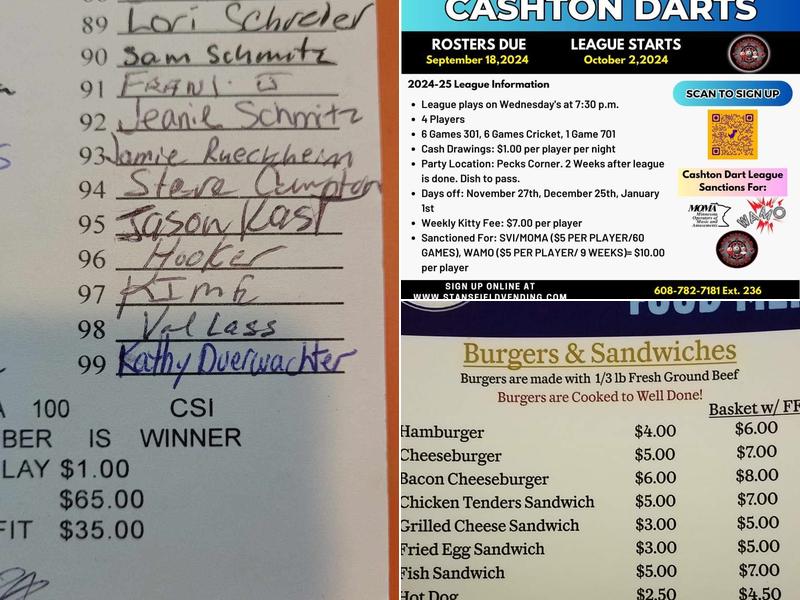 89 Lori Schreier
90 Sam Schmitz
91
92 Jeanie Schmitz
93 Jamie Rueckheim
94 Steve Cumpton
95 Jason Kast
96 Hooker
97
98 Val Lass
99 Kathy Duerwachter
100 CSI
BER IS WINNER
LAY $1.00
$65.00
FIT $35.00
CASHTON DARTS
ROSTERS DUE
September 18,2024
LEAGUE STARTS
October 2,2024
2024-25 League Information
League plays on Wednesday's at 7:30 p.m.
4 Players
6 Games 301, 6 Games Cricket, 1 Game 701
Cash Drawings: $1.00 per player per night
Party Location: Pecks Corner. 2 Weeks after league
is done. Dish to pass.
Days off: November 27th, December 25th, January
1st
Weekly Kitty Fee: $7.00 per player
Sanctioned For: SVI/MOMA ($5 PER PLAYER/60
GAMES), WAMO ($5 PER PLAYER/ 9 WEEKS)= $10.00
per player
SCAN TO SIGN UP
Cashton Dart League
Sanctions For:
MOMA
Minnesota
Operators of
Music and
Amusements
WAMO
SIGN UP ONLINE AT
WWW.STANSFIELDVENDING.COM
608-782-7181 Ext. 236
Burgers & Sandwiches
Burgers are made with 1/3 lb Fresh Ground Beef
Burgers are Cooked to Well Done!
Basket w/ FF
Hamburger $4.00 $6.00
Cheeseburger $5.00 $7.00
Bacon Cheeseburger $6.00 $8.00
Chicken Tenders Sandwich $5.00 $7.00
Grilled Cheese Sandwich $3.00 $5.00
Fried Egg Sandwich $3.00 $5.00
Fish Sandwich $5.00 $7.00
Hot Dog $2.50 $4.50